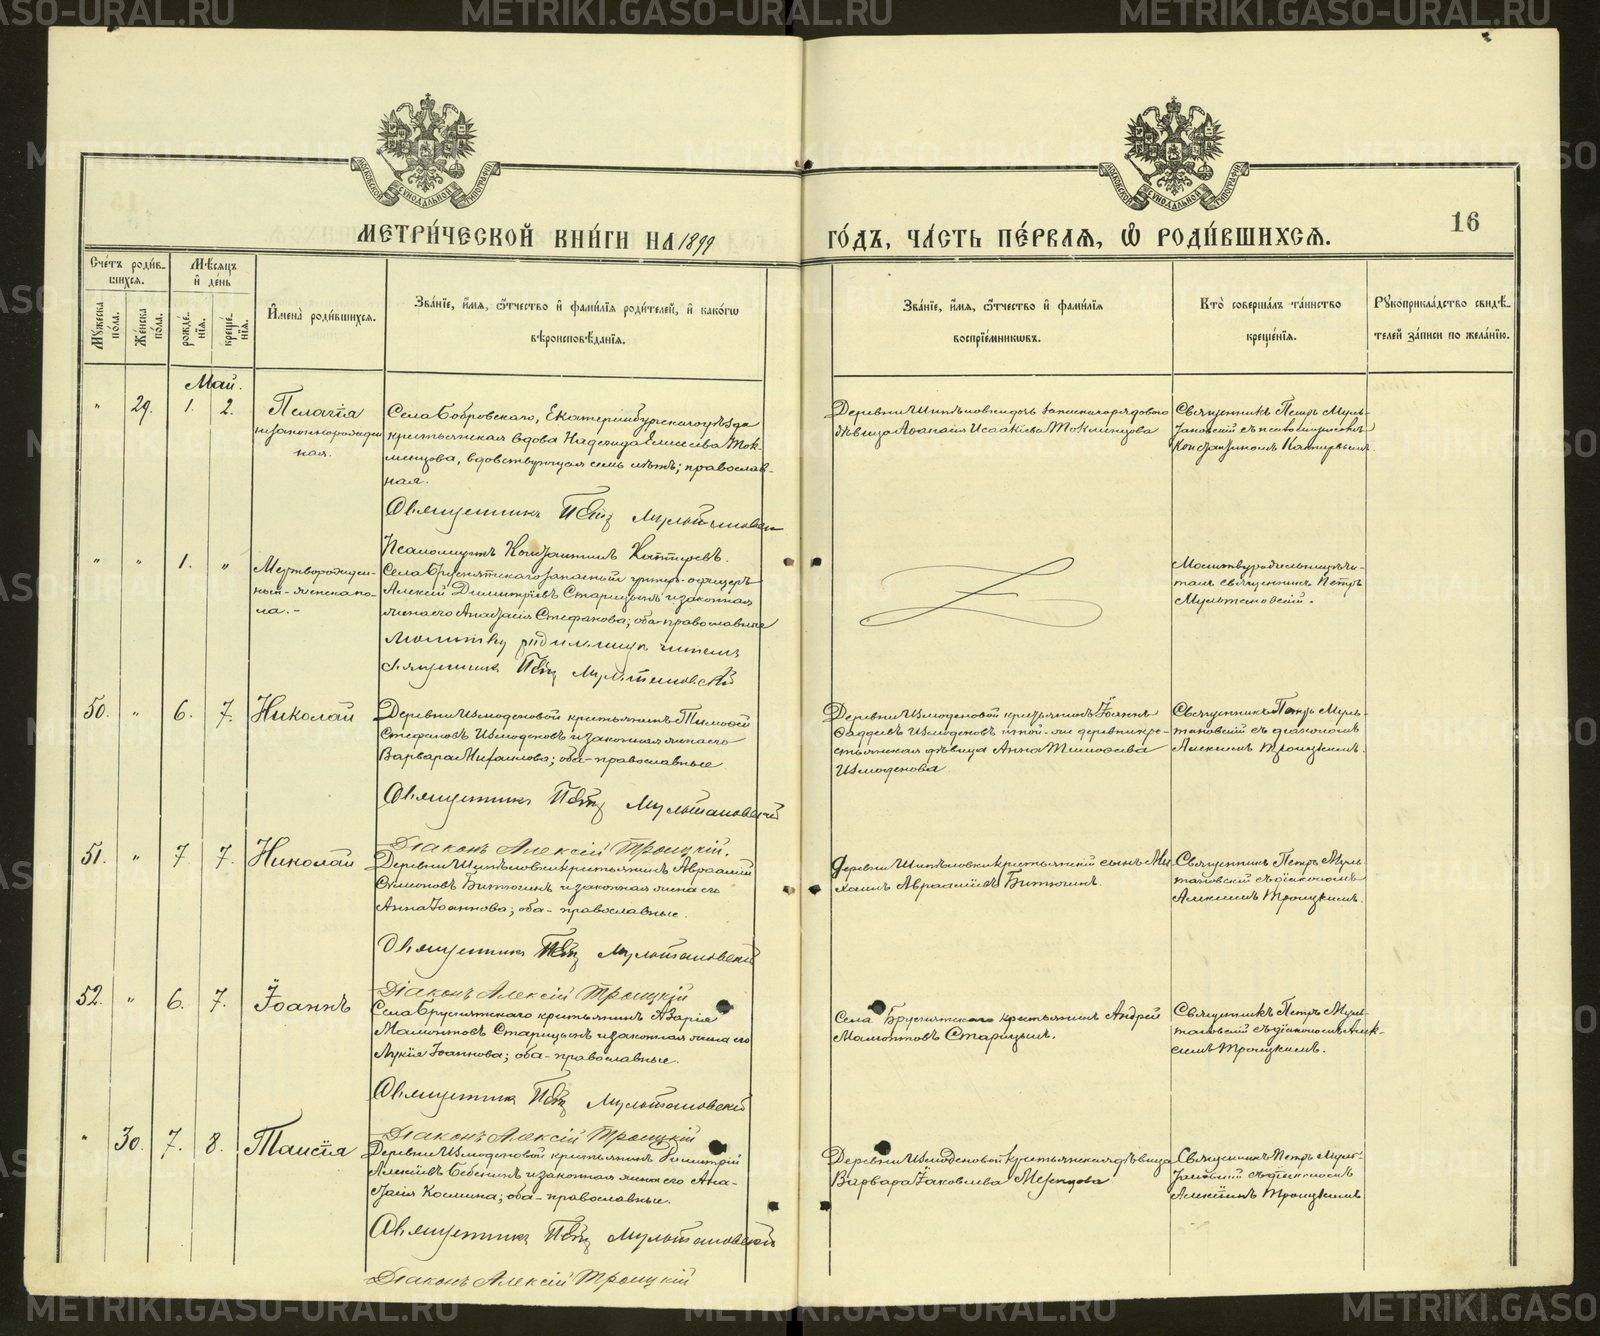 METRIKI.GASO-URAL.RU
МЕТРИ́ЧЕСКОЙ КНИ́ГИ НА 1899
ГО́ДЪ, ЧА́СТЬ ПЕ́РВАЯ, Ѡ РОДИ́ВШИХСЯ.
16
Сче́тъ роди́в-
шихся.
Мѣ́сяцъ
и҆ де́нь
Мꙋ́жеска
по́ла.
Же́нска
по́ла.
рожде́-
нїя.
креще́-
нїя.
И҆мена̀ роди́вшихся.
Зва́нїе, и҆́мя, ѻ҆́тчество и҆ фами́лїя роди́телей, и҆ како́гѡ
вѣроисповѣ́данїя.
Зва́нїе, и҆́мя, ѻ҆́тчество и҆ фами́лїя
воспрїе́мникѡвъ.
Кто̀ соверша́лъ та́инство
креще́нїя.
Рꙋкоприкла́дство свидѣ́-
телей за́писи по жела́нїю.
Май.
" 29. 1. 2. Пелагія
незаконнорожден
ная.
Села Бобровскаго, Екатеринбургскаго уѣзда
крестьянская вдова Надежда Елисеева Ток-
менцова, вдовствующая семь лѣтъ; православ-
ная.
Священникъ Петр Мультановскій
Псаломщикъ Константинъ Каптыревъ.
дѣвица Афанасія Исаакіева Токменцова
Священникъ Петръ Муль-
тановский съ псаломщикомъ
Константиномъ
" " 1. " Мертворожден-
ный - женска по-
ла. -
Села Бруснятскаго запасный унтеръ-офицеръ
Алексѣй Димитріевъ Старицынъ и законная
жена его Анастасія Стефанова; оба-православные
Молитву родильницѣ читалъ
Священникъ Петр Мультановскій
Молитву родильницѣ чи-
талъ священникъ Петръ
Мультановскій.
50. " 6. 7. Николай
Деревни Измоденовой крестьянинъ Тимофей
Стефановъ Измоденовъ и законная жена его
Варвара Михаилова; оба-православные
Священникъ Петр Мультановскій
Діаконъ Алексій Троицкій.
Деревни Измоденовой крестьянинъ Іоаннъ
Фаддеевъ Измоденовъ и той-же деревни кре-
стьянская дѣвица Анна Тимофеева
Измоденова
Священникъ Петръ Муль-
тановскій съ діакономъ
Алексіемъ Троицкимъ.
51. " 7. 7. Николай
Деревни Шипѣловки крестьянинъ Авраамій
Симоновъ Битюгинъ и законная жена его
Анна Іоаннова; оба-православные.
Священникъ Петр Мультановскій
Діаконъ Алексій Троицкій
Деревни Шипѣловки крестьянскій сынъ Ми-
хаилъ Авраамiевъ Битюгинъ.
Священникъ Петръ Муль-
тановскій съ діакономъ
Алексіемъ Троицкимъ.
52. " 6. 7. Іоаннъ
Села Бруснятскаго крестьянинъ Азарія
Мамонтовъ Старицынъ и законная жена его
Лукія Іоаннова; оба-православные.
Священникъ Петр Мультановскій
Діаконъ Алексій Троицкій
Села Бруснятскаго крестьянинъ Андрей
Мамонтовъ Старицынъ.
Священникъ Петръ Муль-
тановскій съ діакономъ Алек-
сіемъ Троицкимъ.
" 30. 7. 8. Таисія
Деревни Измоденовой крестьянинъ Димитрій
Алексіевъ Бебенинъ и законная жена его Ана-
стасія Космина; оба-православные.
Священникъ Петр Мультановскій
Діаконъ Алексій Троицкій
Деревни Измоденовой крестьянская дѣвица
Варвара Іаковлева Мезенцова
Священникъ Петръ Муль-
тановскій съ діакономъ
Алексіемъ Троицкимъ